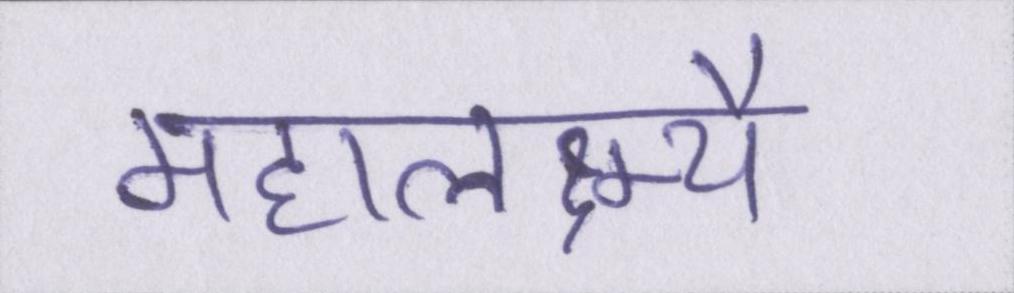 महालक्ष्म्यै